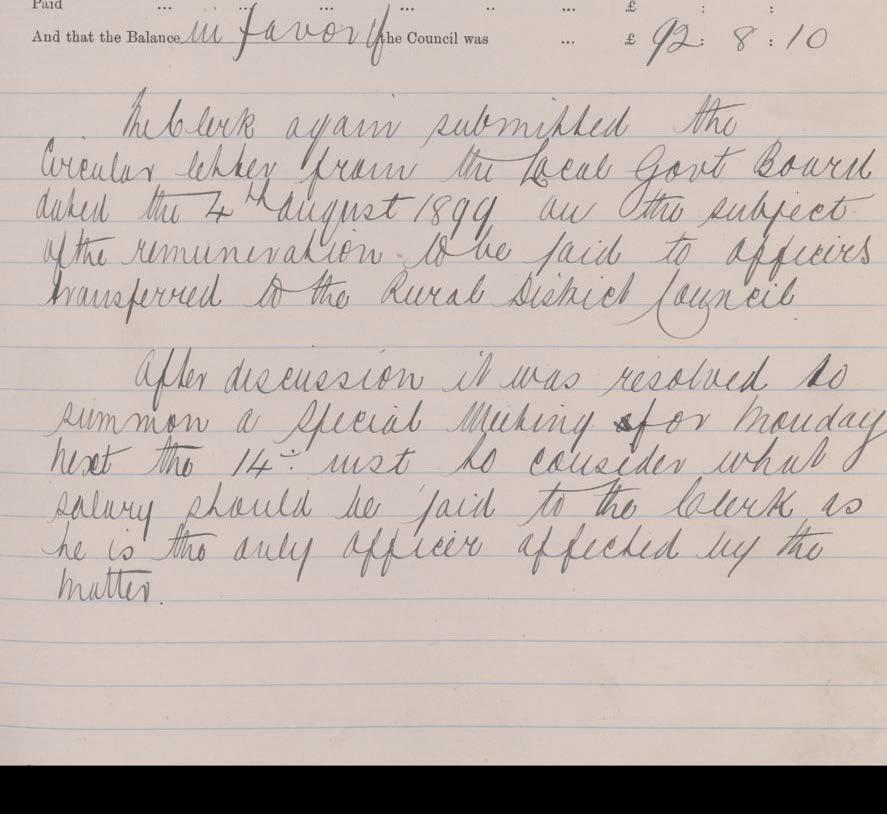 Paid ... ... ... ... .. ... £ : :
And that the Balance in favor of the Council was ... £ 92 : 8 : 10
The Clerk again submitted the
Circular letter from the Local Govt Board
dated the 4th August 1899 on the subject
of the remuneration to be paid to officers
transferred to the Rural District Council
After discussion it was resolved to
summon a Special Meeting for Monday
next the 14th inst to consider what
salary should be paid to the Clerk as
he is the only officer affected by the
matter.